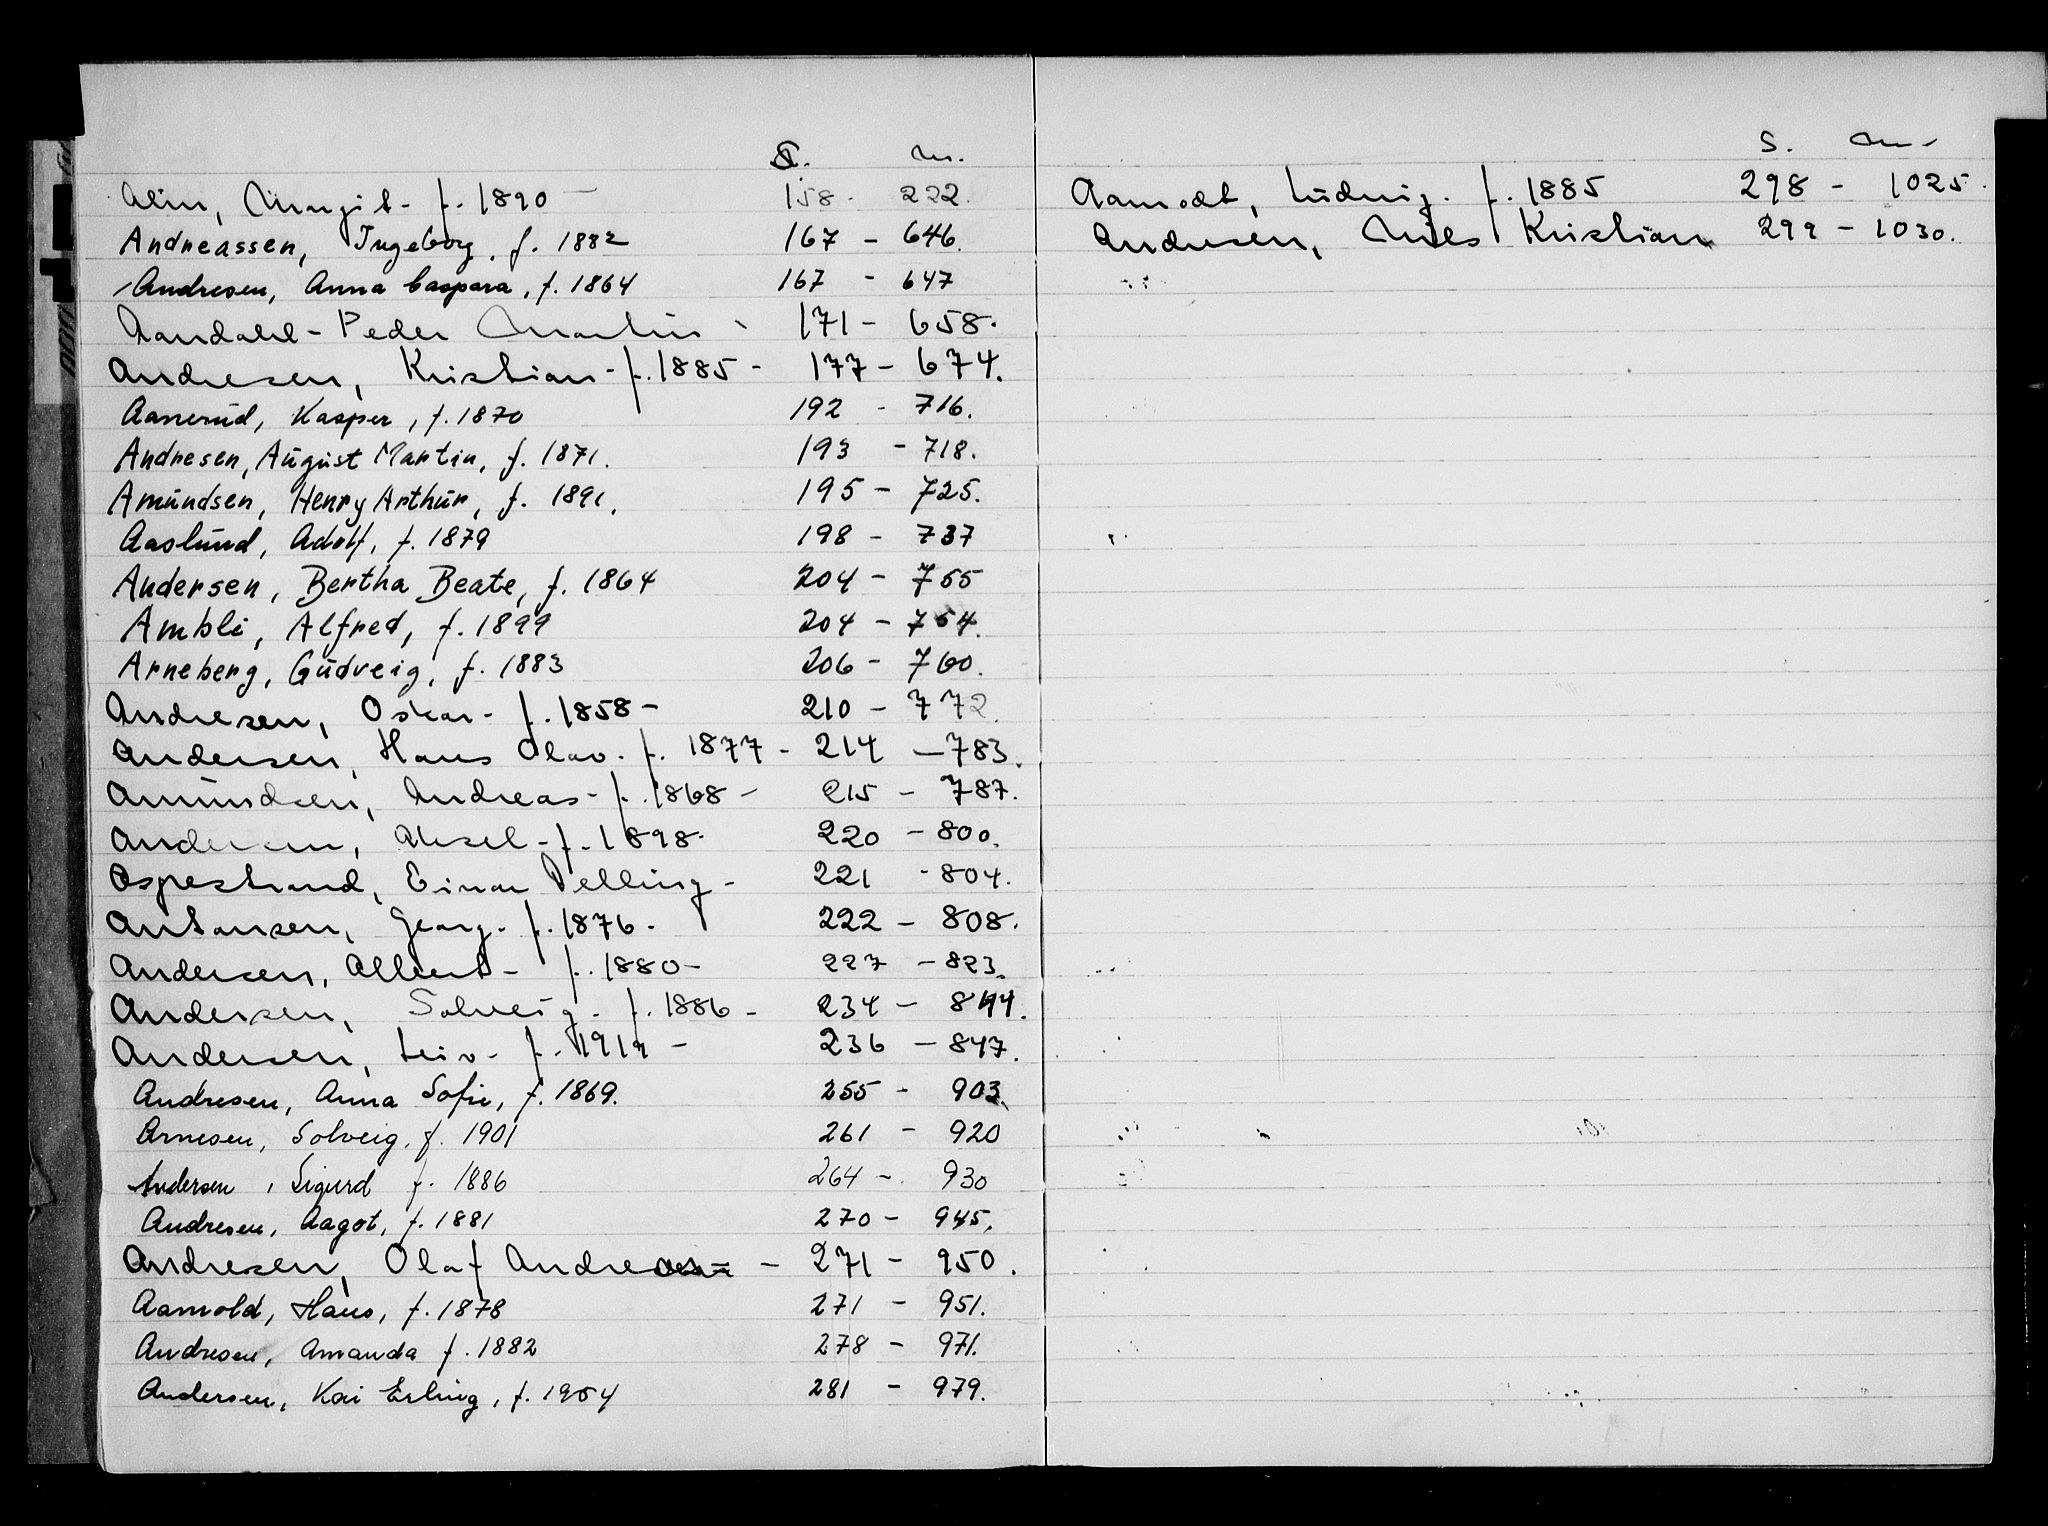 S. nr.
Alm, Margit - f. 1890 - 158 - 222.
Andreassen, Ingeborg, f. 1882 167 - 646.
Andresen, Anna Caspara, f. 1864 167 - 647
Aandahl - Peder Martin - 171 - 658.
Andresen, Kristian - f. 1885 - 177 - 674.
Aanerud, Kasper, f. 1870 192 - 716.
Andresen, August Martin, f. 1871. 193 - 718.
Amundsen, Henry Arthur, f. 1891. 195 - 725.
Aaslund, Adolf, f. 1879 198 - 737
Andersen, Bertha Beate, f. 1864 204 - 755
Ambli, Alfred, f. 1899 204 - 754.
Arneberg, Gudveig, f. 1883 206 - 760.
Andresen, Oskar - f. 1858 - 210 - 772.
Andersen, Hans Olav. f. 1877 - 214 - 783.
Amundsen, Andreas - f. 1868 - 215 - 787.
Andersen, Aksel - f. 1898. 220 - 800.
Aspestrand, Einar Pelling - 221 - 804.
Antonsen, Georg. f. 1876. 222 - 808.
Andersen, Albert - f. 1880 - 227 - 823.
Andersen, Solveig - f. 1886 - 234 - 844.
Andersen, Leiv - f. 1919 - 236 - 847.
Andresen, Anna Sofie, f. 1869. 255 - 903.
Arnesen, Solveig, f. 1901 261 - 920
Andersen, Sigurd f. 1886 264 - 930
Andresen, Aagot, f. 1881 270 - 945.
Andresen, Olaf Andreas - 271 - 950.
Aamold, Hans, f. 1878 271 - 951.
Andresen, Amanda f. 1882 278 - 971.
Andersen, Kai Erling, f. 1904 281 - 979.
S. nr.
Aamodt, Ludvig. f. 1885 298 - 1025.
Andersen, Nils Kristian 299 - 1030.